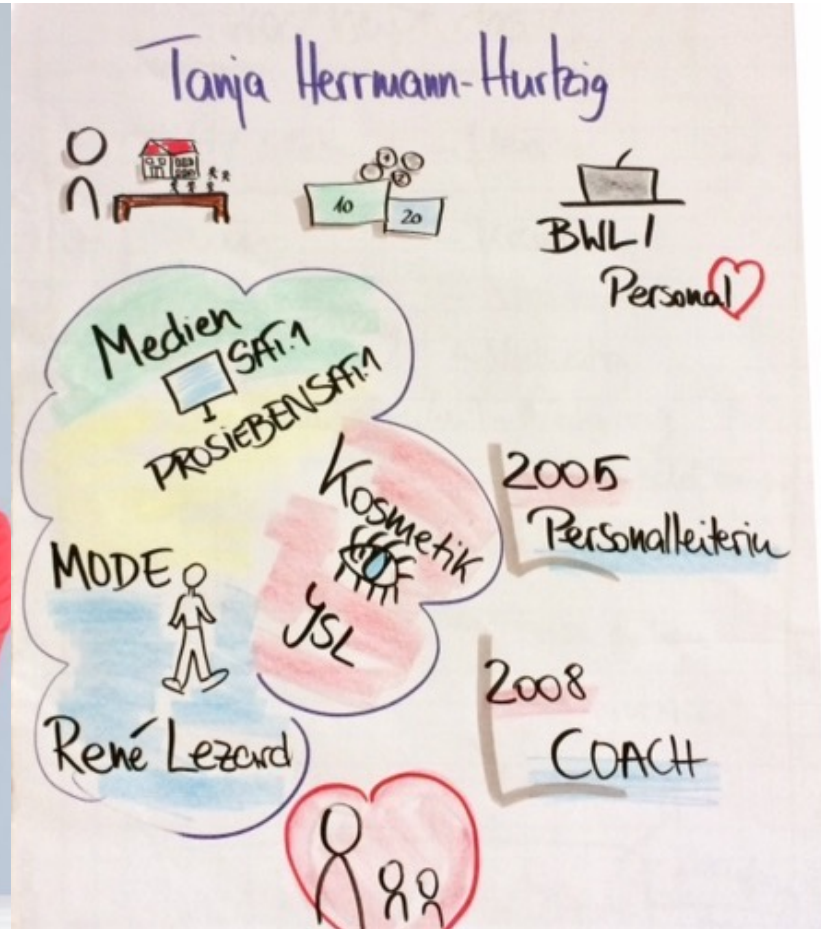 Tanja Herrmann-Hurtzig
10
20
BWL /
Personal
Medien
SAT.1
PROSIEBENSAT.1
Kosmetik
YSL
MODE
René Lezard
2005
Personalleiterin
2008
COACH